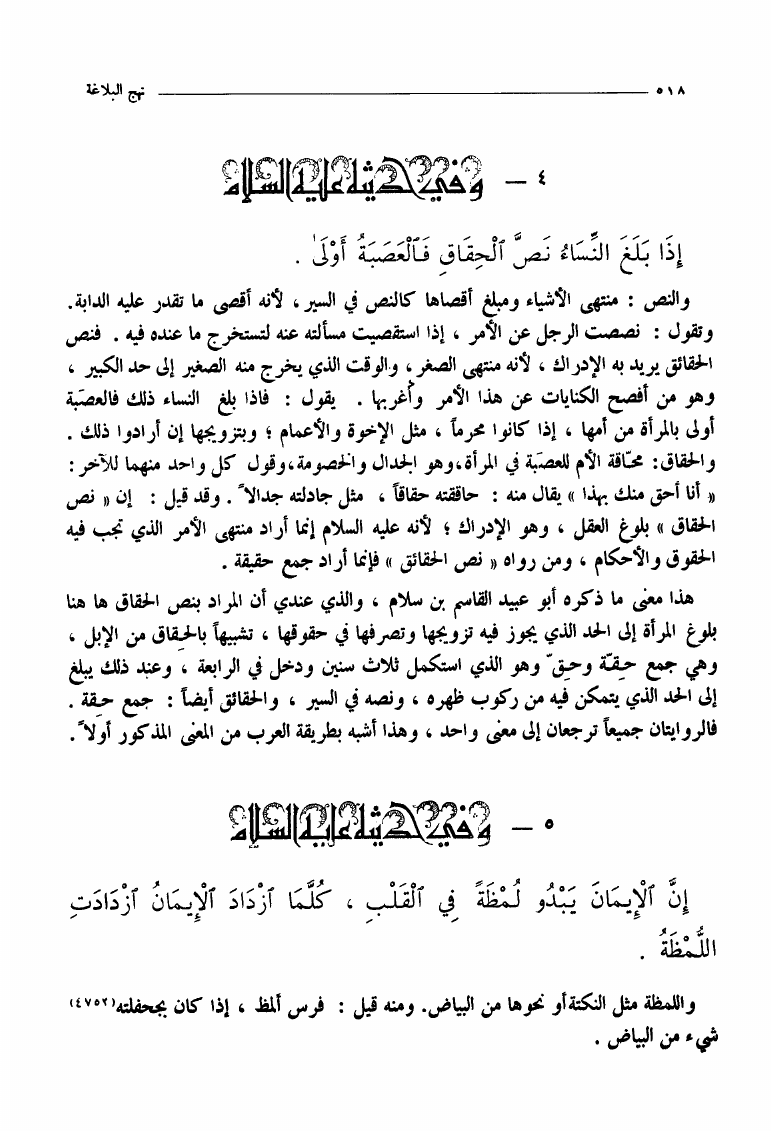 ٥١٨ نهج البلاغة
٤ – وفي حديثه عليه السلام
إِذَا بَلَغَ النِّسَاءُ نَصَّ ٱلْحِقَاقِ فَٱلْعَصَبَةُ أَوْلَىٰ .
والنص : منتهى الأشياء ومبلغ أقصاها كالنص في السير ، لأنه أقصى ما تقدر عليه الدابة.
وتقول : نصصت الرجل عن الأمر ، إذا استقصيت مسألته عنه لتستخرج ما عنده فيه . فنص
الحقائق يريد به الإدراك ، لأنه منتهى الصغر، والوقت الذي يخرج منه الصغير إلى حد الكبير ،
وهو من أفصح الكنايات عن هذا الأمر وأغربها . يقول : فاذا بلغ النساء ذلك فالعصَبة
أولى بالمرأة من أمها ، إذا كانوا محرماً ، مثل الإخوة والأعمام ؛ وبتزويجها إن أرادوا ذلك .
والحقاق: محَاقة الأم للعصَبة في المرأة،وهو الجدال والخصومة،وقول كل واحد منهما للآخر:
« أنا أحق منك بهذا » يقال منه : حاققته حقاقاً ، مثل جادلته جدالاً . وقد قيل : إن « نص
الحقاق » بلوغ العقل ، وهو الإدراك ؛ لأنه عليه السلام إنما أراد منتهى الأمر الذي تجب فيه
الحقوق والأحكام ، ومن رواه « نص الحقائق » فإنما أراد جمع حقيقة .
هذا معنى ما ذكره أبو عبيد القاسم بن سلام ، والذي عندي أن المراد بنص الحقاق ها هنا
بلوغ المرأة إلى الحد الذي يجوز فيه تزويجها وتصرفها في حقوقها ، تشبيهاً بالحِقاق من الإبل ،
وهي جمع حِقّة وحِقّ وهو الذي استكمل ثلاث سنين ودخل في الرابعة ، وعند ذلك يبلغ
إلى الحد الذي يتمكن فيه من ركوب ظهره ، ونصه في السير ، والحقائق أيضاً : جمع حِقة .
فالروايتان جميعاً ترجعان إلى معنى واحد ، وهذا أشبه بطريقة العرب من المعنى المذكور أولاً .
٥ – وفي حديثه عليه السلام
إِنَّ ٱلْإِيمَانَ يَبْدُو لُمْظَةً فِي ٱلْقَلْبِ ، كُلَّمَا ٱزْدَادَ ٱلْإِيمَانُ ٱزْدَادَتِ
اللُّمْظَةُ .
واللمظة مثل النكتة أو نحوها من البياض. ومنه قيل : فرس ألمظ ، إذا كان بجحفلته(٤٧٥٢)
شيء من البياض .